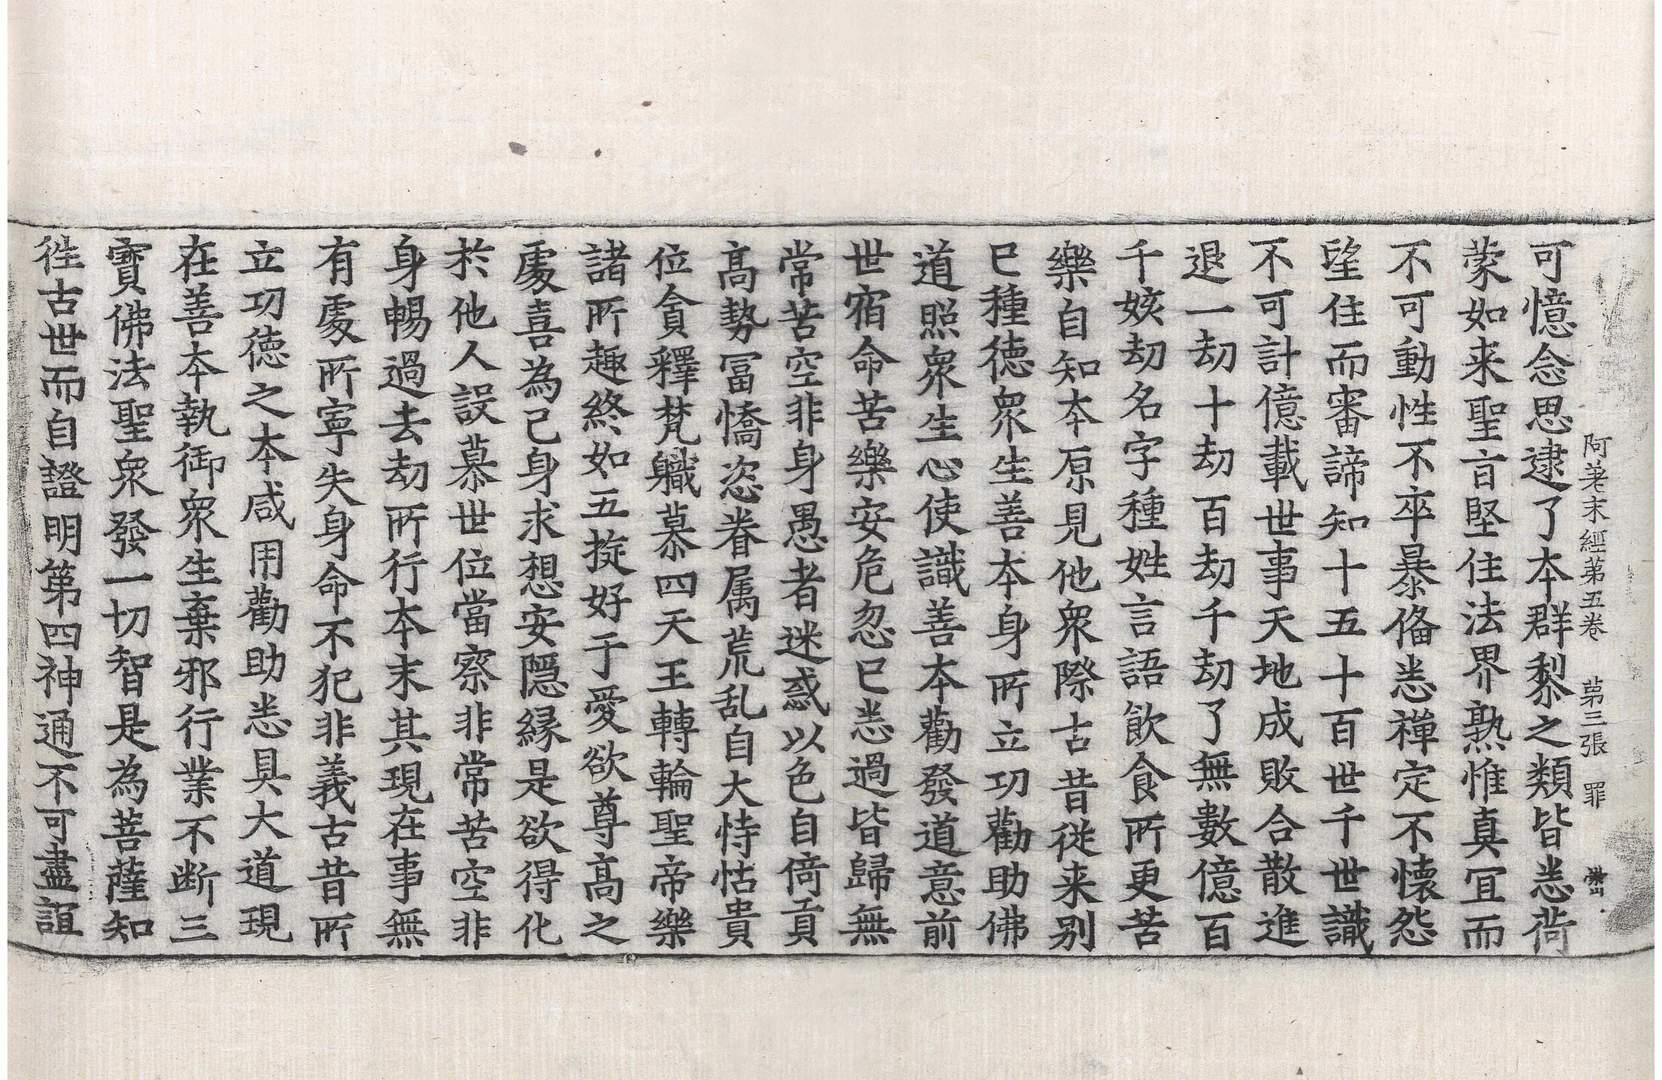 阿差末經第五卷 第三張 罪
可憶念思逮了本群黎之類皆悉荷
蒙如来聖旨堅住法界熟惟真冝而
不可動性不卒暴俻悉禅定不懐怨
望住而審諦知十五十百世千世識
不可計億載世事天地成敗合散進
退一劫十劫百劫千劫了無數億百
千姟劫名字種姓言語飲食所更苦
樂自知本原見他衆際古昔従来别
已種徳衆生善本身所立功勸助佛
道照衆生心使識善本勸發道意前
世宿命苦樂安危忽已悉過皆歸無
常苦空非身愚者迷惑以色自倚貢
髙勢冨憍恣眷属荒乱自大恃怙貴
位貪釋梵軄慕四天王轉輪聖帝樂
諸所趣終如五㨂好于愛欲尊髙之
處喜為己身求想安隱縁是欲得化
扵他人設慕世位當察非常苦空非
身暢過去劫所行本末其現在事無
有處所寧失身命不犯非義古昔所
立功徳之本咸用勸助悉具大道現
在善本執御衆生棄邪行業不断三
寳佛法聖衆發一切智是為菩薩知
徃古世而自證明第四神通不可盡誼